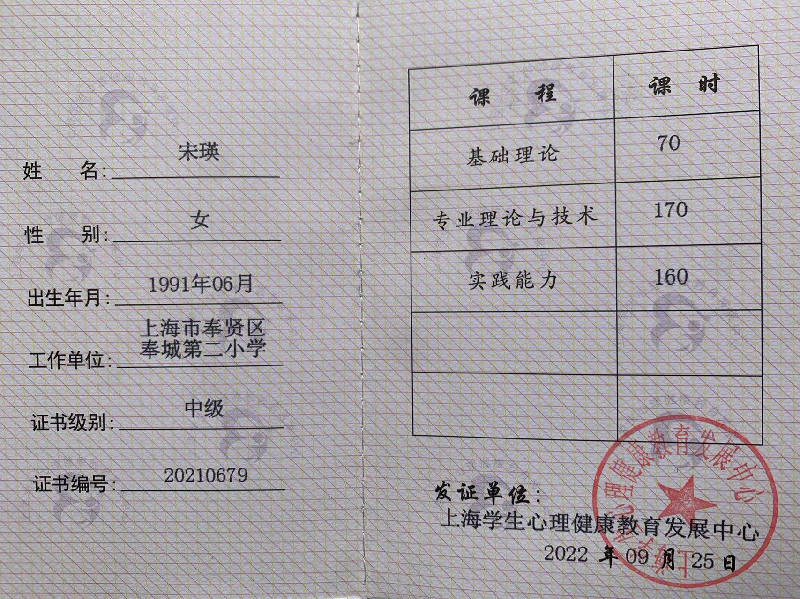 姓 名: 宋瑛
性 别: 女
出生年月: 1991年06月
工作单位: 上海市奉贤区
奉城第二小学
证书级别: 中级
证书编号: 20210679
课 程 课 时
基础理论 70
专业理论与技术 170
实践能力 160
发证单位:
上海学生心理健康教育发展中心
2022 年 09 月 25 日
上海学生心理健康教育发展中心